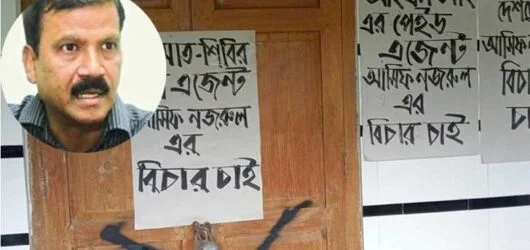 মাত-শিবির
এজেন্ট
আসিফ নজরুল
এর
বিচার চাই
এর পেইড
এজেন্ট
আসিফ নজরুল
এর
বিচার চাই
আসিফ
বিচার